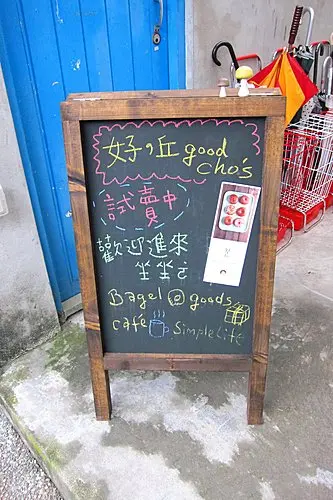 好子の丘 good
cho's
試賣中
歡迎進來
坐坐
Bagel @ goods
café Simple Life